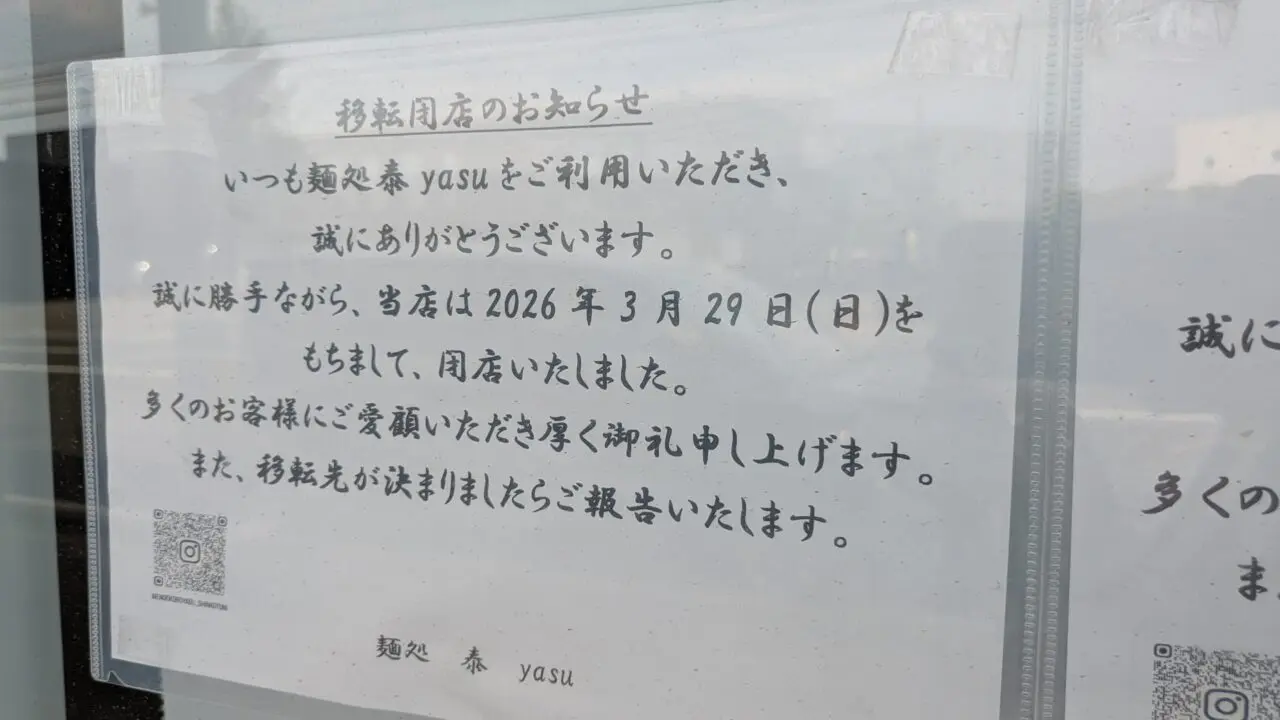 移転閉店のお知らせ
いつも麺処泰 yasu をご利用いただき、
誠にありがとうございます。
誠に勝手ながら、当店は 2026 年 3 月 29 日(日)を
もちまして、閉店いたしました。
多くのお客様にご愛顧いただき厚く御礼申し上げます。
また、移転先が決まりましたらご報告いたします。
麺処 泰 yasu
誠に
多くの
ま